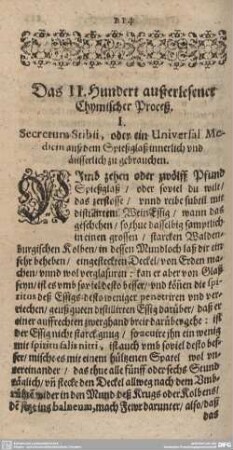 Das II. Hundert außerlesener
Chymischer Proceß.
I.
Secretum Stibii, oder ein Universal Me-
dicin auß dem Spießglaß innerlich und
äusserlich zu gebrauchen.
NImb zehen oder zwölff Pfund
Spießglaß / oder soviel du wilt /
das zerstosse / vnnd reibs subtil mit
distillirtem WeinEssig / wann das
geschehen / so thue dasselbig sämptlich
in einen grossen / starcken Walden-
burgischen Kolben / in dessen Mundloch laß dir ein
sehr beheben / eingesteckten Deckel / von Erden ma-
chen / vnnd wol verglasuren: kan er aber von Glaß
seyn / ist es vmb soviel desto besser / vnd können die spi-
ritus deß Essigs desto weniger penetriren vnd ver-
riechen / geuß guten distillirten Essig darüber / daß er
einer auffrechten zwerghand breit darüber gehe: ist
der Essig nicht starck gnug / so acuire ihn ein wenig
mit spiritu salis nitri, ist auch vmb soviel desto bes-
ser / misch es mit einem hültzenen Spatel wol vn-
tereinander / das thue alle fünff oder sechs Stund
täglich / vñ stecke den Deckel allweg nach dem Vmb-
rühren wider in den Mund deß Krugs oder Kolbens /
balneum, nach Fewr darunter / also / daß
das